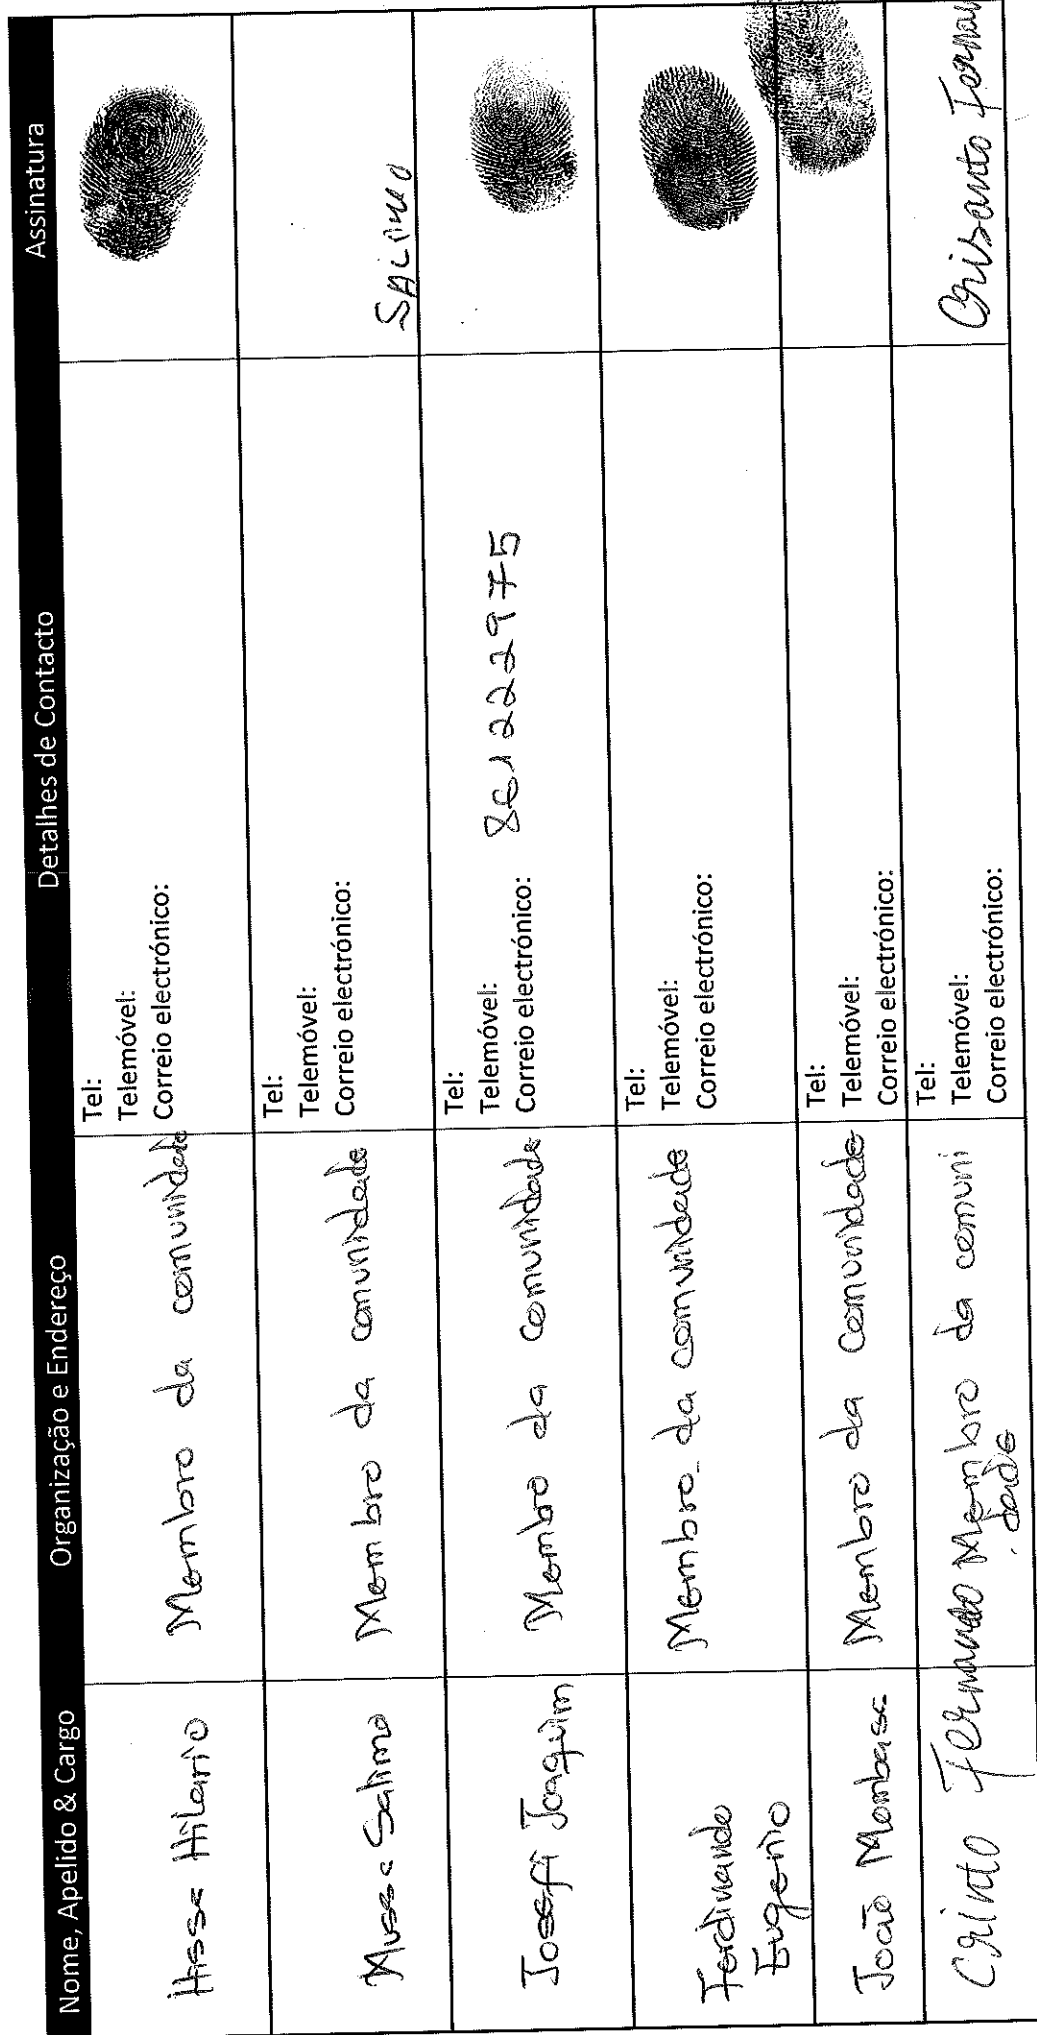 Nome, Apelido & Cargo Organização e Endereço Detalhes de Contacto Assinatura
Hissa Hilario Membro da comunidade
Tel:
Telemóvel:
Correio electrónico:
Mussa Salimo Membro da comunidade
Tel:
Telemóvel:
Correio electrónico:
SALIMO
Josefi Joaquim Membro da comunidade
Tel:
Telemóvel: 861222975
Correio electrónico:
Ferdinando
Eugenio
Membro da comunidade
Tel:
Telemóvel:
Correio electrónico:
João Mombasa Membro da comunidade
Tel:
Telemóvel:
Correio electrónico:
Crinto Fernando Membro da comuni
dade
Tel:
Telemóvel:
Correio electrónico:
Crisanto Fernan